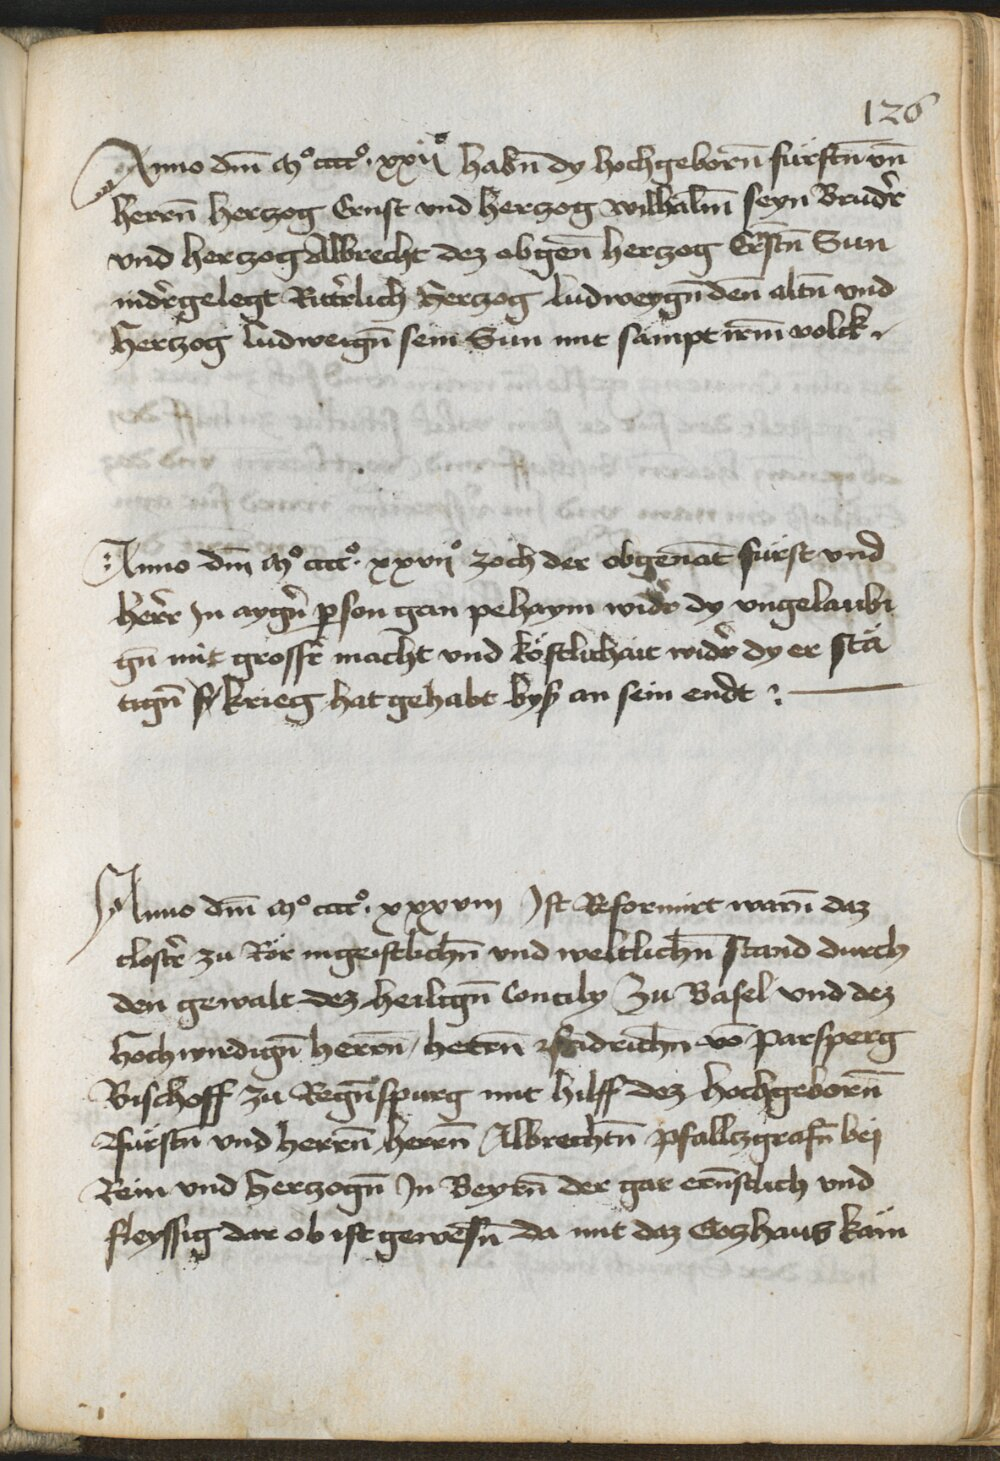 126
Anno dm̄ Mº ccccº. xxijº habn̄ dy hochgeborn̄ fürstn̄ vn̄
herrn̄ Hertzog Ernst vnd Hertzog Wilhalm̄ seyn Brudr̄
vnd hertzog Albrecht dez obgen̄ hertzog Ernstn̄ Sun
nidr̄gelegt Rittr̄lich Hertzog Ludweygn̄ den̄ altn̄ vnd
Hertzog Ludweign̄ sein Sun mit sampt irm̄ volck
Anno dm̄ Mº ccccº. xxvijº zoch der obgenāt fürst vnd
herr̄ In aygn̄ pson gein pehaym widr̄ dy vngelaubi
gn̄ mit grossr̄ macht vnd köstlichait widr̄ dy er stä
tign̄ krieg hat gehabt byß an sein endt
Anno dm̄ Mº ccccº. xxxviij Ist Reformirt warn̄ daz
clostr̄ zu Rör in geistlichn̄ vnd weltlichn̄ stand durch
den gewalt dez heilign̄ Concily Zu Basel vnd dez
Hochwirdign̄ herrn̄ herrn̄ fridrichn̄ vō Parsperg
Bischoff zu Regn̄spurg mit hilff dez hochgeborn̄
fürstn̄ vnd herrn̄ herrn̄ Albrechtn̄ pfalltzgrafn̄ bei
Rein vnd Hertzogn̄ In Beyrn̄ der gar ern̄stlich vnd
fleyssig dar ob ist gewesn̄ da mit daz Gotzhaus käm